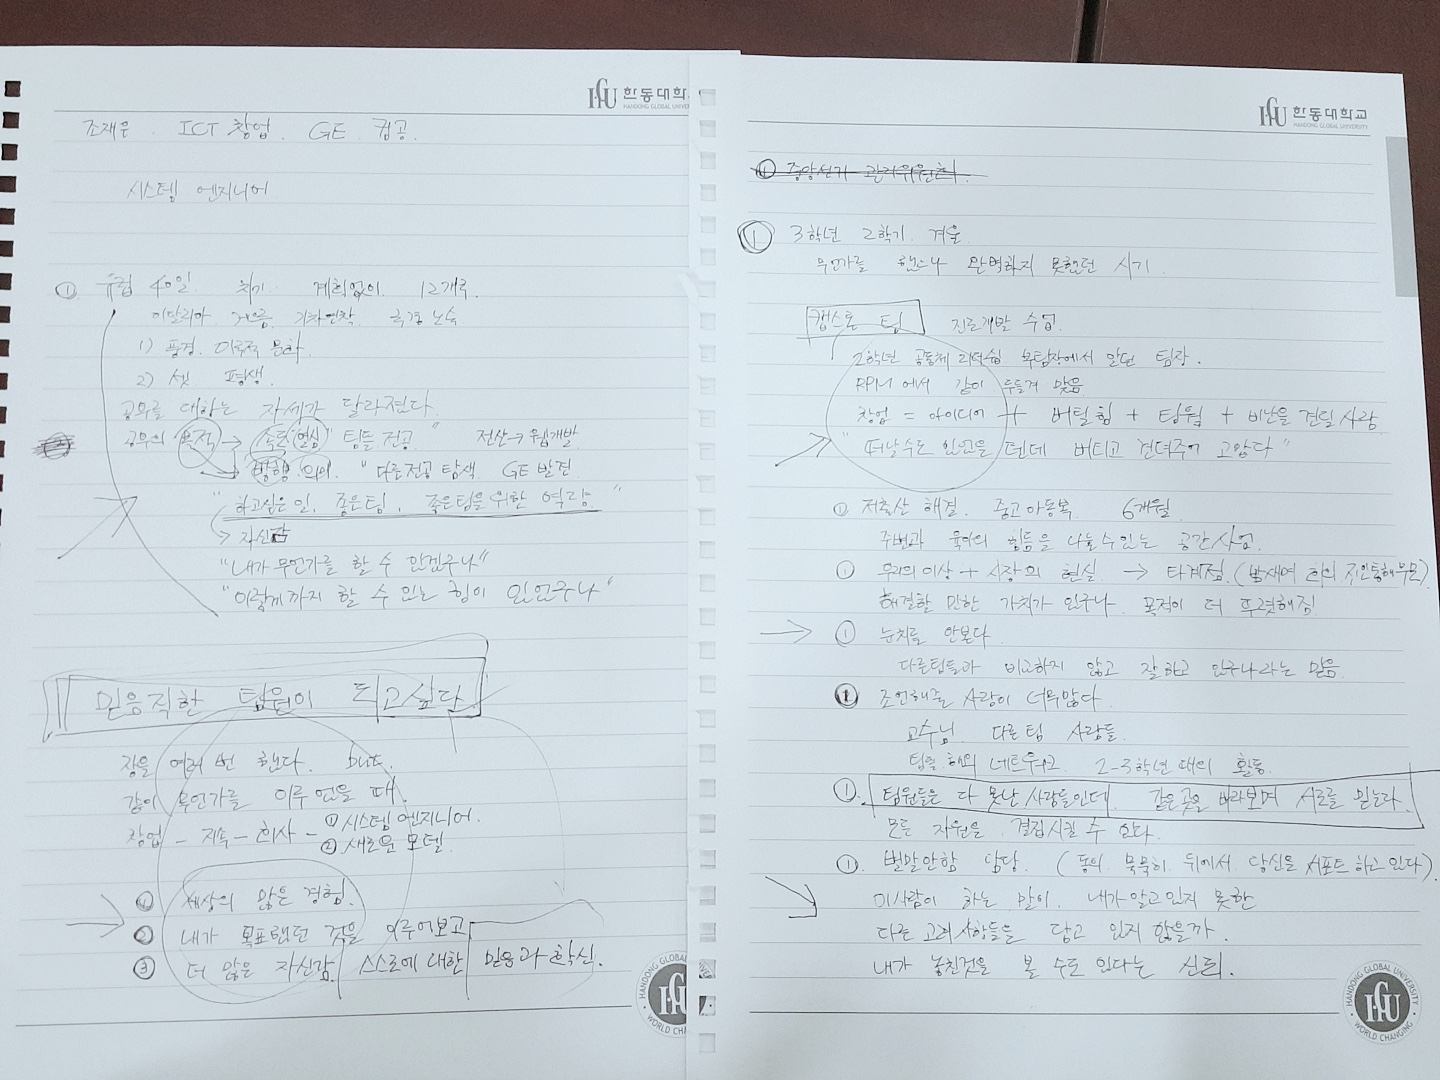 한동대학
HANDONG GLOBAL UNIVER
조재우. ICT 창업. GE. 컴공.
시스템 엔지니어
① 유럽 40일 계획없이 12개국.
이탈리아 기차연착 국경 노숙
1) 풍경. 이국적 문화
2) 셋 평생.
공부를 대하는 자세가 달라졌다.
공부의 목적 → 속력 "열심" 팀들 전공" 전산→웹개발
방향 의미. "다른전공 탐색 GE 발견
"하고싶은 일, 좋은팀, 좋은팀을 위한 역량"
→ 자신감
"내가 무언가를 할 수 있겠구나"
"이렇게까지 할 수 있는 힘이 있었구나"
믿음직한 팀원이 되고싶다
장을 여러 번 했다. but.
같이 무언가를 이루었을 때.
창업 - 지속 - 회사 - ① 시스템엔지니어.
② 새로운 모델.
① 세상의 많은 경험.
② 내가 목표했던 것을 이루어보고
③ 더 많은 자신감. 스스로에 대한 믿음과 확신.
HANDONG GLOBAL
WORLD CHANG
한동대학교
HANDONG GLOBAL UNIVERSITY
① 중앙선거 관리위원회.
① 3학년 2학기. 겨울
무언가를 했으나 완벽하지 못했던 시기.
캡스톤 팀 진로개발 수업.
2학년 공동체 리더쉽 부팀장에서 맡던 팀장.
에서 같이 두들겨 맞음
창업 = 아이디어 + 버틸힘 + 팀웤 + 비난을 견딜 사람
"떠날수도 있었을 텐데 버티고 견뎌주어 고맙다"
① 저출산 해결. 중고아동복 6개월
주변과 육아의 힘듦을 나눌수있는 공간사업.
① 우리의이상 + 시장의 현실. → 타계점. (밤새며 회의 지인통해부모)
해결할 만한 가치가 있구나. 목적이 더 뚜렷해짐.
① 눈치를 안본다.
다른팀들과 비교하지 않고 잘하고 있구나라는 믿음
① 조언해줄 사람이 너무많다.
교수님 다른팀 사람들.
팀별 해외 네트워크 2-3학년 때의 활동.
① 팀원들은 다 못난 사람들인데. 같은곳을 바라보며 서로를 믿는다.
모든 자원을. 결집시킬 수 있다.
① 별말안함 담당. (동의. 묵묵히. 뒤에서. 당신을 서포트 하고 있다).
이사람이 하는 말이. 내가 알고있지 못한
다른 고려사항들을 담고 있지 않을까.
내가 놓친것을 볼 수도 있다는 신뢰.
HANDONG GLOBAL UNIVERSITY
WORLD CHANGING